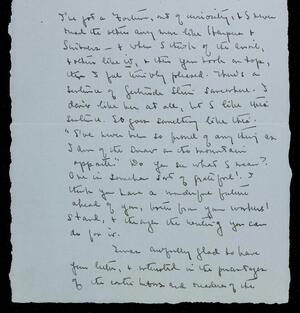 I've got a fortune, out of curiosity, & I never
read the other any more like Harpers &
Scribners — & when I think of the
& others like it, & then you both on top,
then I feel terribly pleased. There's a
sentence of Gertrude Stein somewhere. I
don't like her at all, but I like this
sentence. It goes something like this:
"I've never been so proud of anything as
I am of the on the mountain
opposite" Do you see what I mean?
One is somehow sort of grateful! I
think you have a wonderful future
ahead of you, both from your workers'
stand, & through the writing you can
do for it.
I was awfully glad to have
your letter, & interested in the percentages
of the and readers of the